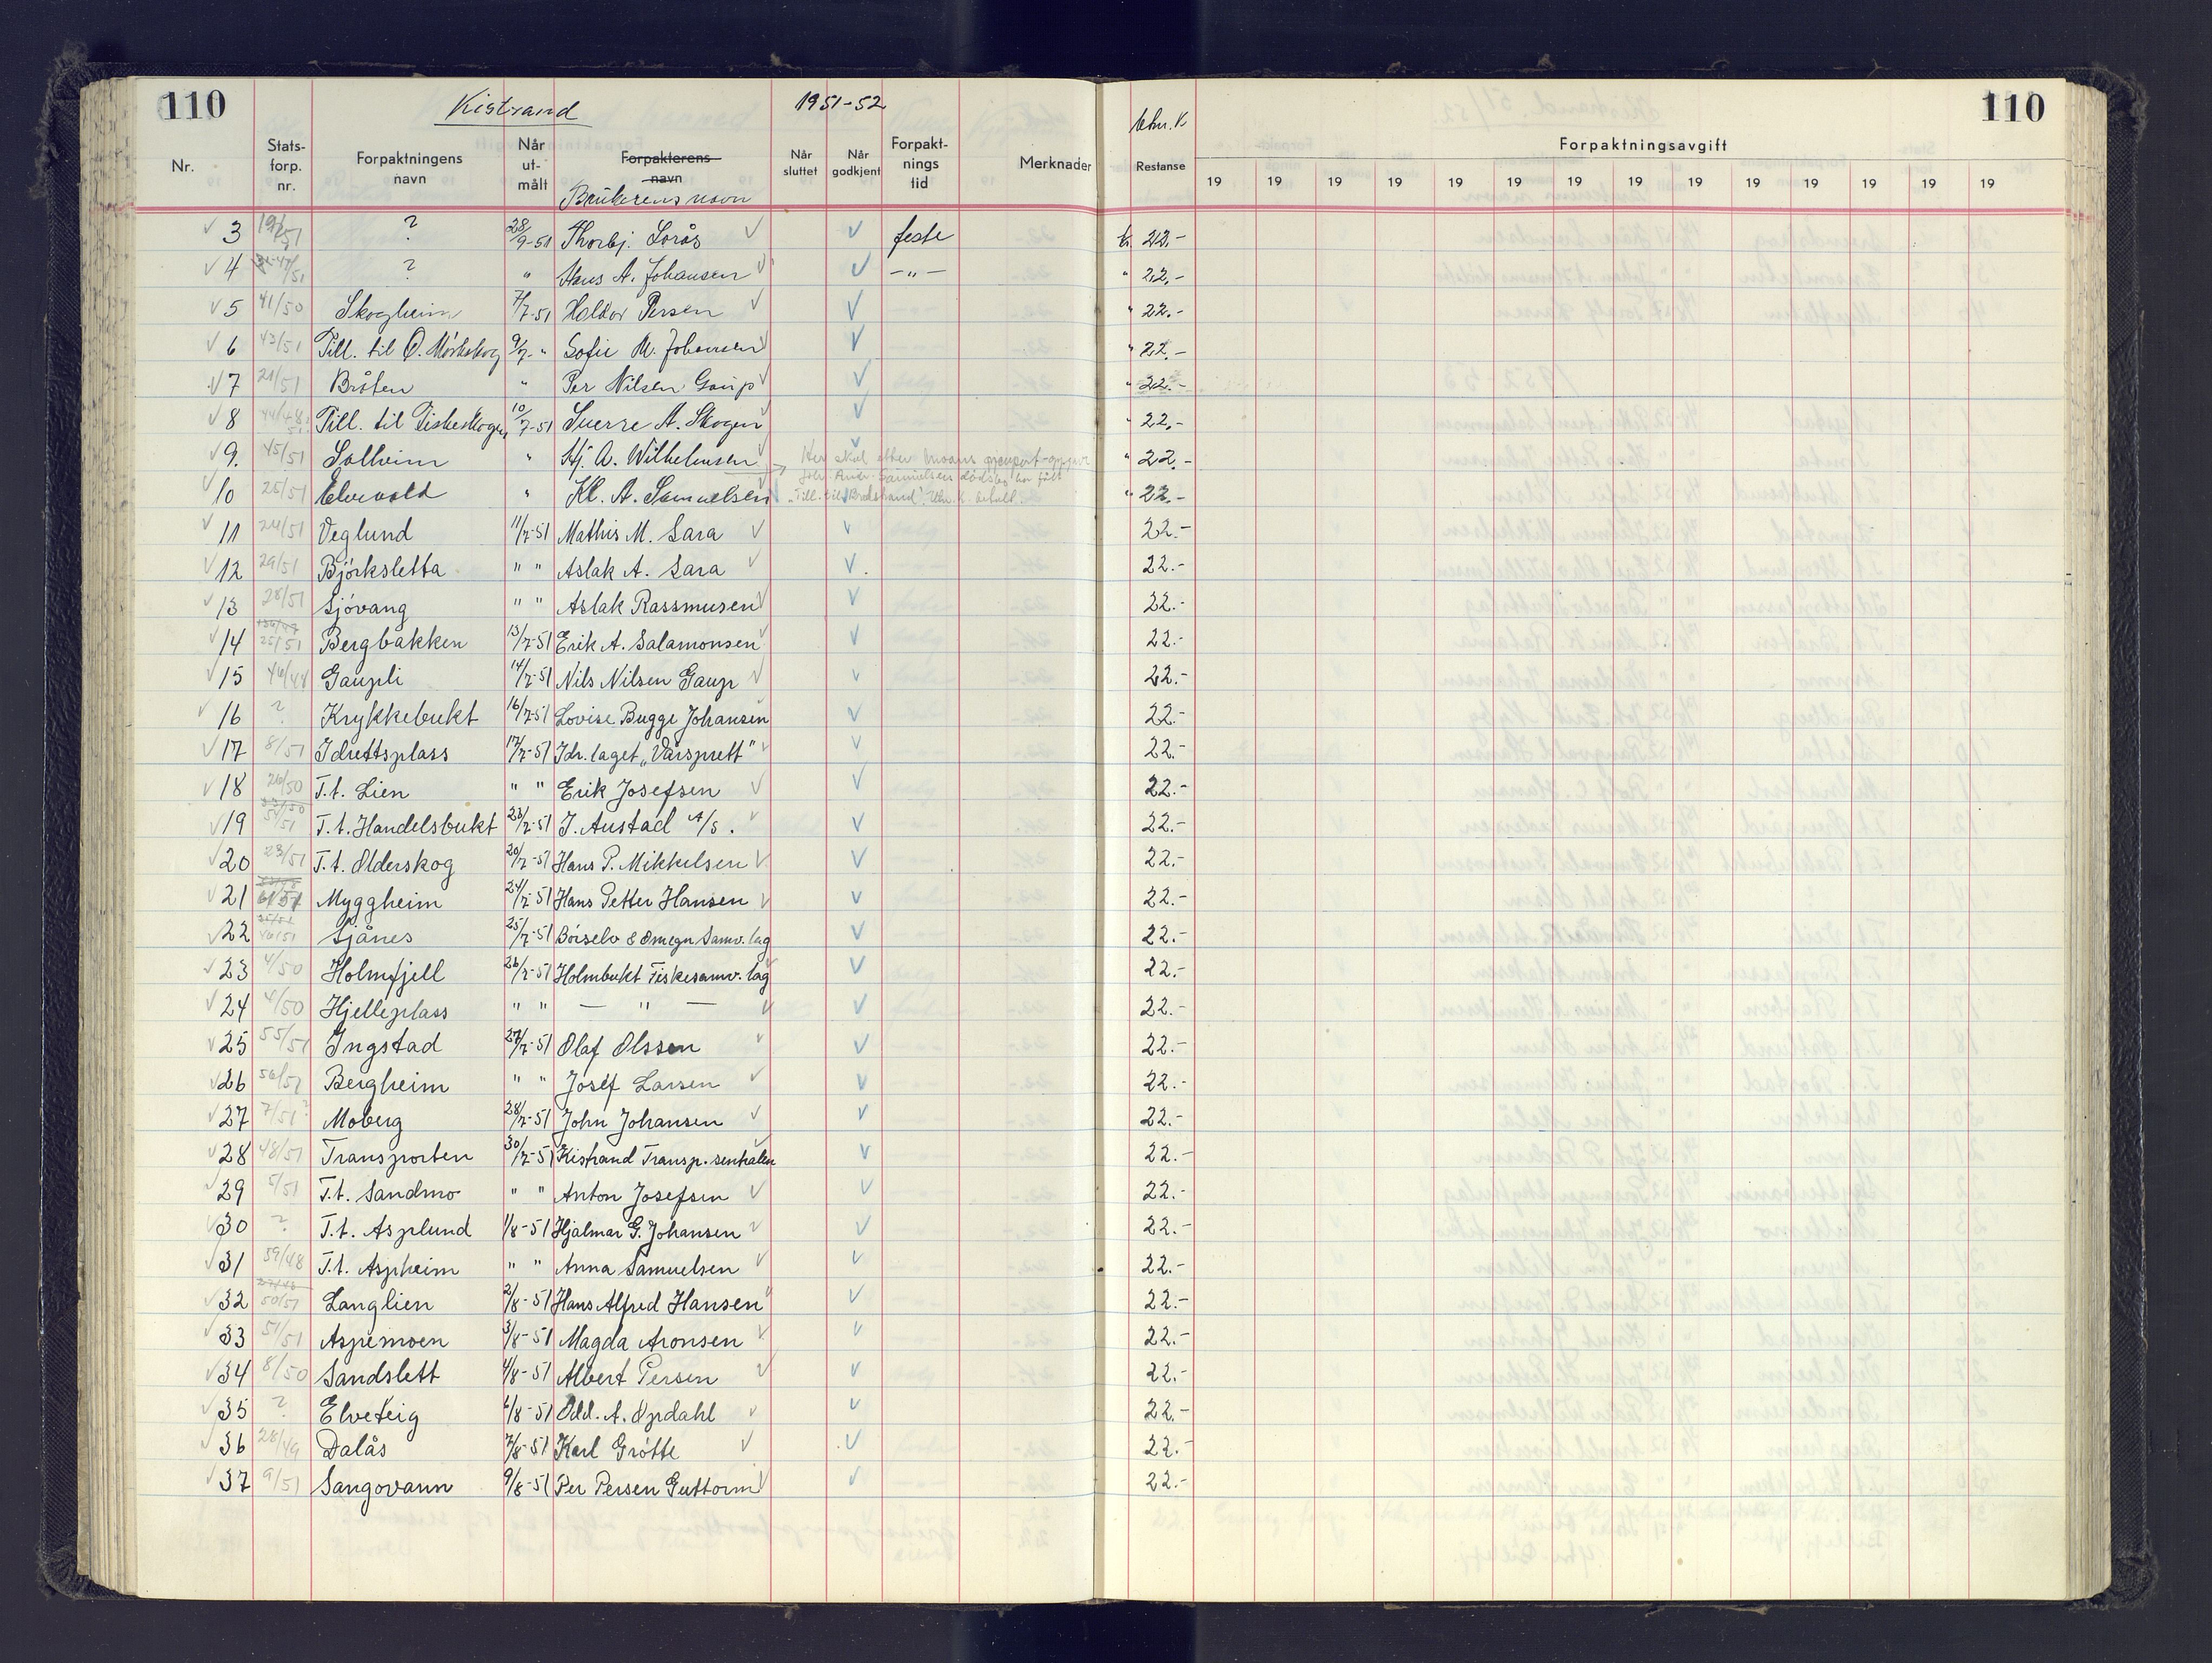 110 Kistrand 1951-52 Utm. K 110
Nr. Stats-forp. nr. Forpaktningens navn Når ut-målt Forpakterens navn Brukerens navn Når sluttet Når godkjent Forpakt-nings tid Merknader Restanse Forpaktningsavgift
19 19 19 19 19 19 19 19 19 19 19 19 19 19
√ 3 ? 28/9-51 Thorbj. Sørås √ √ feste kr. 22,-
√ 4 ? " Hans A. Johansen √ √ -"- " 22,-
√ 5 41/50 Skogheim 7/7-51 Haldor Persen √ √ " 22.-
√ 6 43/51 Till. til Ø. Mørkskog 9/7- " Sofie M. Johansen √ √ " 22.-
√ 7 21/51 Bråten " Per Nilsen Gaup √ √ " 22.-
√ 8 Till. til Fiskeskogen 10/7-51 Sverre A. Skogen √ √ " 22,-
√ 9. 45/51 Solheim " Hj. A. Wilhelmsen √ √ " 22.-
√ 10 25/51 Elvevold " Kl. A. Samuelsen √ √ " 22.-
√ 11 24/51 Veglund 11/7-51 Mathis M. Sara √ √ 22.-
√ 12 29/51 Bjørksletta " " Aslak A. Sara √ √ 22.-
√ 13 28/51 Sjøvang " " Aslak Rassmusen √ √ 22.-
√ 14 25/51 Bergbakken 13/7-51 Erik A. Salamonsen √ √ 22.-
√ 15 46/48 Gaupli 14/7-51 Nils Nilsen Gaup √ √ 22.-
√ 16 ? Krykkebukt 16/7-51 Lovise Bugge Johansen √ 22.-
√ 17 8/51 Idrettsplass 17/7-51 Idr. laget „Vårsprett" √ √ 22.-
√ 18 26/50 T.t. Lien " " Erik Josefsen √ √ 22.-
√ 19 T.t. Handelsbukt 23/7-51 J. Austad A/S. √ √ 22.-
√ 20 23/51 T.t. Olderskog 20/7-51 Hans P. Mikkelsen √ √ 22.-
√ 21 Myggheim 24/7-51 Hans Petter Hansen √ √ 22.-
√ 22 Sjånes 25/7-51 Børselv & Omegn Samv. lag √ 22.-
√ 23 4/50 Holmfjell 26/7-51 Holmbukt Fiskesamv. lag √ √ 22.-
√ 24 4/50 Hjelleplass " " — " — √ √ 22.-
√ 25 55/51 Ingstad 27/7-51 Olaf Olssen √ √ 22.-
√ 26 56/51 Bergheim " " Josef Larsen √ √ 22.-
√ 27 7/51? Moberg 28/7-51 John Johansen √ √ 22.-
√ 28 48/51 Transporten 30/7-51 Kistrand Transp. sentralen √ √ 22.-
√ 29 5/51 T.t. Sandmo " " Anton Josefsen √ √ 22.-
√ 30 ? T.t. Asplund 1/8-51 Hjalmar G. Johansen √ √ 22.-
√ 31 39/48 T.t. Aspheim " " Anna Samuelsen √ √ 22.-
√ 32 50/51 Langlien 2/8-51 Hans Alfred Hansen √ √ 22.-
√ 33 51/51 Aspemoen 3/8-51 Magda Aronsen √ √ 22.-
√ 34 8/50 Sandslett 4/8-51 Albert Persen √ √ 22.-
√ 35 ? Elveteig 6/8-51 Odd. A. Opdahl √ √ 22.-
√ 36 28/49 Dalås 7/8-51 Karl Grøtte √ √ 22.-
√ 37 9/51 Sangovann 9/8-51 Per Persen Guttorm √ √ 22.-